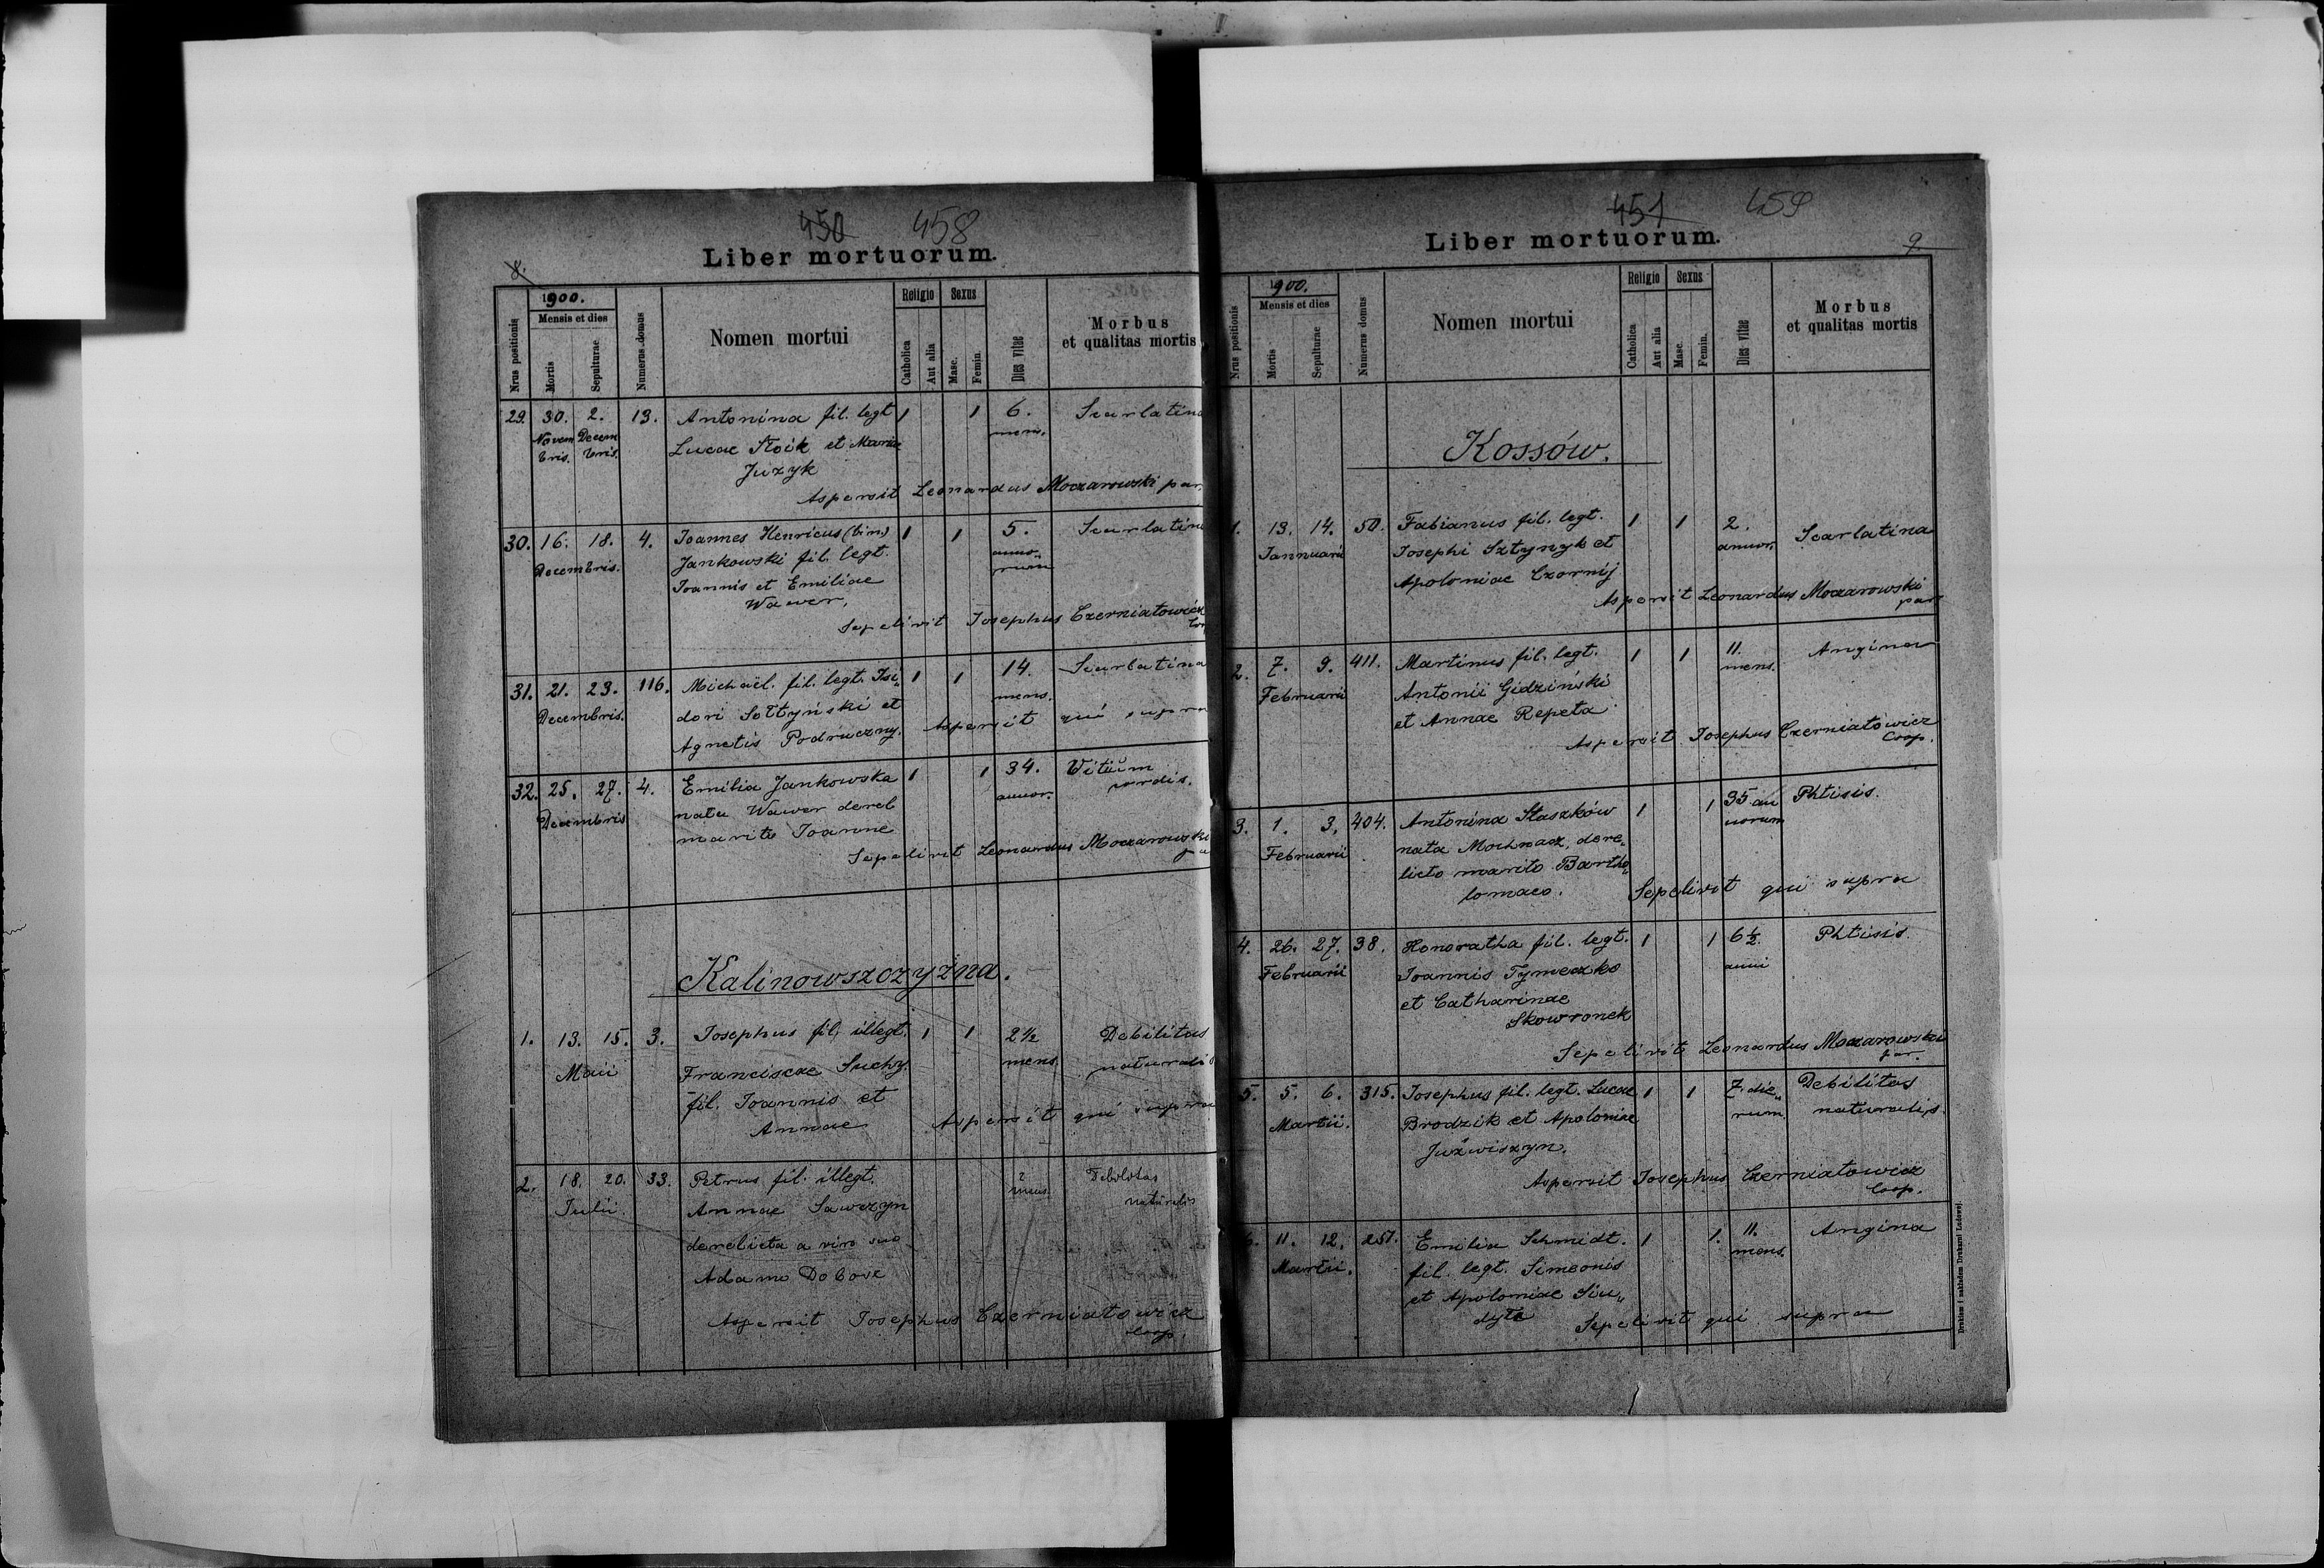 450 458
Liber mortuorum.
8.
Nrus positionis
1900.
Mensis et dies
Mortis
Sepulturae
Numerus domus
Nomen mortui
Religio
Catholica
Aut alia
Sexus
Masc.
Femin.
Dies vitae
Morbus
et qualitas mortis
29. 30. 2. 13. Antonina fil. legt 1 1 6. Scarlatina
Novem Decem Lucae Stoik et Mariae mens.
bris. bris. Juzyk
Aspersit Leonardus Moczarowski par.
30. 16. 18. 4. Joannes Henricus (bin) 1 1 5. Scarlatina
Decembris. Jankowski fil. legt. anno„
Joannis et Emiliae rum
Wawer,
Sepelivit Josephus Czerniatowicz
31. 21. 23. 116. Michaël. fil. legt. Isi„ 1 1 14. Scarlatina
Decembris. dori Sołtyński et mens.
Agnetis Podruczny. Aspersit qui supra
32. 25. 27. 4. Emilia Jankowska 1 1 34. Witium
Decembris nata Wawer derel annor. cordis.
marito Joanne
Sepelivit Leonardus Moczarowski
Kalinowszczyzna.
1. 13. 15. 3. Josephus fil. illegt. 1 1 2½ Debilitas
Maii Franciscae Suchy. mens. naturalis
fil. Joannis et
Annae Aspersit qui supra
2. 18. 20. 33. Petrus fil. illegt. 2 Debilitas
Julii. Annae Sawczyn mens. naturalis
derelicta a viro suo
Adamo Dobove
Aspersit Josephus Czerniatowicz
Coop.
451 459
Liber mortuorum.
9.
Nrus positionis
1900.
Mensis et dies
Mortis
Sepulturae
Numerus domus
Nomen mortui
Religio
Catholica
Aut alia
Sexus
Masc.
Femin.
Dies vitae
Morbus
et qualitas mortis
Kossów.
1. 13. 14. 50. Fabianus fil. legt. 1 1 2. Scarlatina
Jannuarii Josephi Sztynyk et annor.
Apoloniae Czornij
Aspersit Leonardus Moczarowski
par
2. 7. 9. 411. Martinus fil. legt. 1 1 11. Angina
Februarii Antonii Gidziński mens.
et Annae Repeta
Aspersit Josephus Czerniatowicz
Coop.
3. 1. 3. 404. Antonina Staszków 1 1 35 an Phtisis.
Februarii nata Mochnacz, dere„ norum
licto marito Bartho„
lomaeo. Sepelivit qui supra
4. 26. 27. 38. Honoratha fil. legt. 1 1 6½ Phtisis.
Februarii Joannis Tymeczko anni
et Catharinae
Skowronek
Sepelivit Leonardus Moczarowski
par.
5. 5. 6. 315. Josephus fil. legt. Lucae 1 1 7 die„ Debilitas
Martii. Brodzik et Apoloniae rum naturalis.
Juźwiszyn.
Aspersit Josephus Czerniatowicz
Coop.
6. 11. 12. 251. Emilia Schmidt. 1 1. 11. Angina
Martii. fil. legt. Simeonis mens.
et Apoloniae Siu„
dyta Sepelivit qui supra
Drukiem i nakładem Drukarni Ludowej